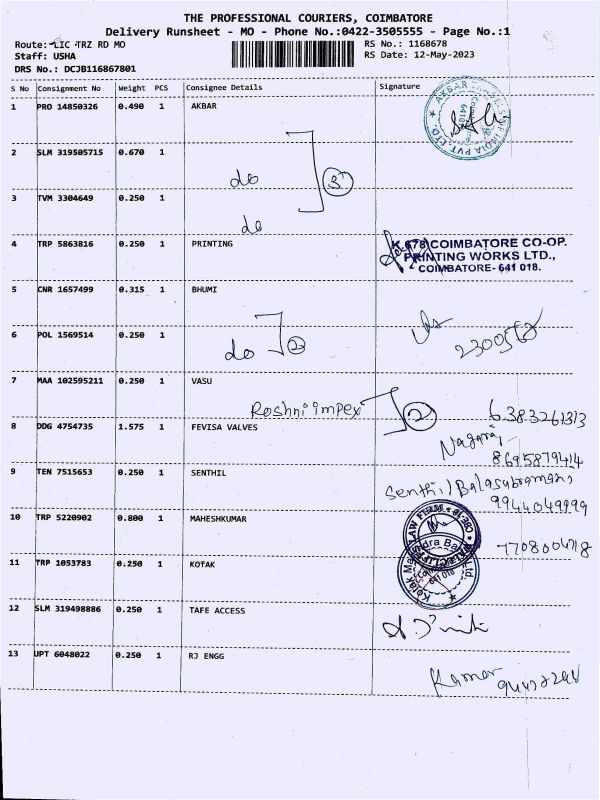 THE PROFESSIONAL COURIERS, COIMBATORE
Delivery Runsheet - MO - Phone No.:0422-3505555 - Page No.:1
Route: LIC TRZ RD MO RS No.: 1168678
Staff: USHA RS Date: 12-May-2023
DRS No.: DCJB116867801
S No Consignment No Weight PCS Consignee Details Signature
1 PRO 14850326 0.490 1 AKBAR
2 SLM 319505715 0.670 1
do 3
3 TVM 3304649 0.250 1
do
4 TRP 5863816 0.250 1 PRINTING
K.678 COIMBATORE CO-OP.
PRINTING WORKS LTD.,
COIMBATORE- 641 018.
5 CNR 1657499 0.315 1 BHUMI
6 POL 1569514 0.250 1
do 2
7 MAA 102595211 0.250 1 VASU
Roshni impex 2 6383261313
8 DDG 4754735 1.575 1 FEVISA VALVES
Nagaraj
8695879414
9 TEN 7515653 0.250 1 SENTHIL
Senthil Balasubramani
9944049999
10 TRP 5220902 0.800 1 MAHESHKUMAR
7708004718
11 TRP 1053783 0.250 1 KOTAK
12 SLM 319498886 0.250 1 TAFE ACCESS
13 UPT 6048022 0.250 1 RJ ENGG
Kumar